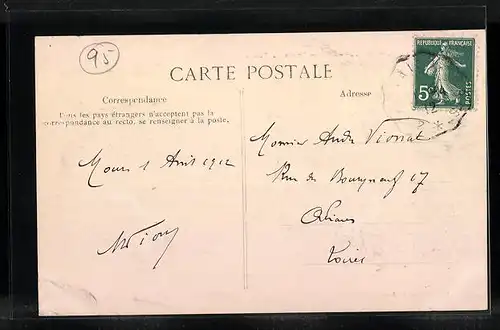 95
RÉPUBLIQUE FRANÇAISE
5c
POSTES
CARTE POSTALE
Correspondance
Adresse
Tous les pays étrangers n'acceptent pas la
correspondance au recto, se renseigner à la poste.
Monsieur André
Rue de Bourgneuf 17
Orléans
Loiret
Mours 1 Avril 1912